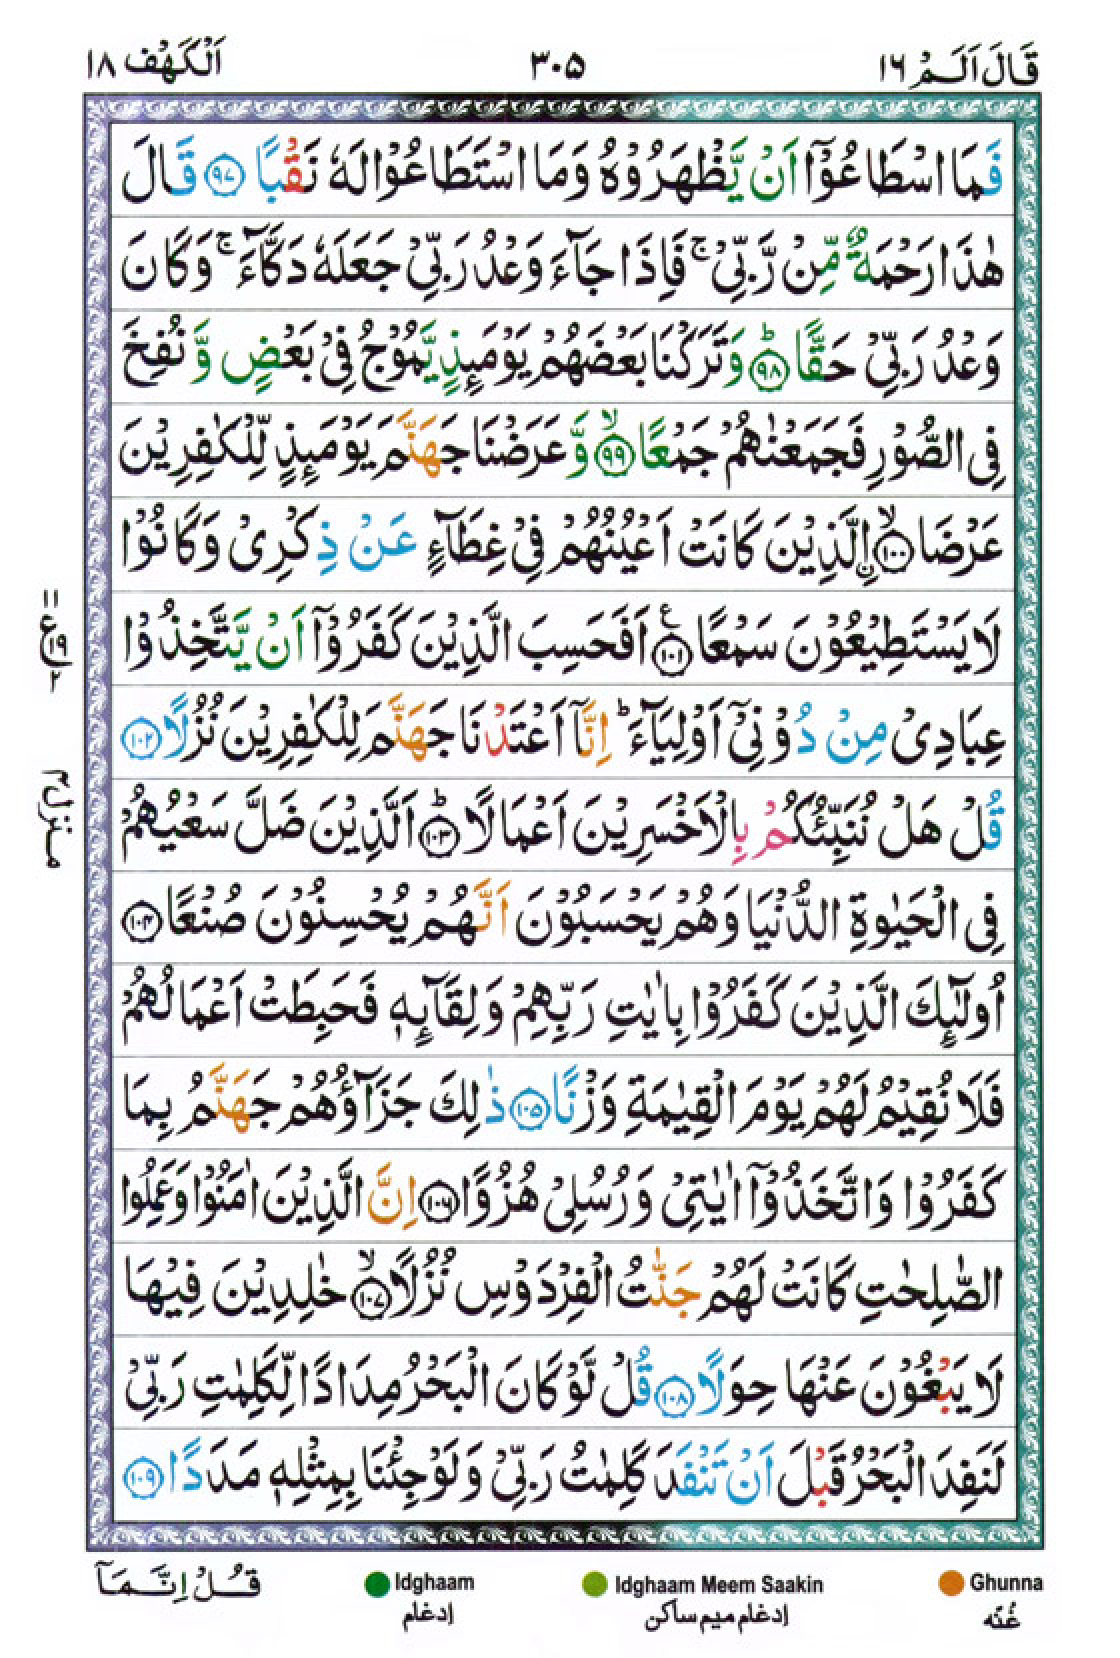 قَالَ اَلَمْ ١٦
٣٠٥
اَلْكَهْف ١٨
فَمَا اسْطَاعُوْۤا اَنْ يَّظْهَرُوْهُ وَمَا اسْتَطَاعُوْا لَهٗ نَقْبًا ۝٩٧ قَالَ
هٰذَا رَحْمَةٌ مِّنْ رَّبِّيْ ۚ فَاِذَا جَآءَ وَعْدُ رَبِّيْ جَعَلَهٗ دَكَّآءَ ۚ وَكَانَ
وَعْدُ رَبِّيْ حَقًّا ؕ۝٩٨ وَتَرَكْنَا بَعْضَهُمْ يَوْمَىِٕذٍ يَّمُوْجُ فِيْ بَعْضٍ وَّ نُفِخَ
فِى الصُّوْرِ فَجَمَعْنٰهُمْ جَمْعًا ۙ۝٩٩ وَّ عَرَضْنَا جَهَنَّمَ يَوْمَىِٕذٍ لِّلْكٰفِرِيْنَ
عَرْضَا ۙ۝١٠٠ ِ۟الَّذِيْنَ كَانَتْ اَعْيُنُهُمْ فِيْ غِطَآءٍ عَنْ ذِكْرِيْ وَكَانُوْا
لَا يَسْتَطِيْعُوْنَ سَمْعًا ۝١٠١ۧ اَفَحَسِبَ الَّذِيْنَ كَفَرُوْۤا اَنْ يَّتَّخِذُوْا
عِبَادِيْ مِنْ دُوْنِيْۤ اَوْلِيَآءَ ؕ اِنَّاۤ اَعْتَدْنَا جَهَنَّمَ لِلْكٰفِرِيْنَ نُزُلًا ۝١٠٢
قُلْ هَلْ نُنَبِّئُكُمْ بِالْاَخْسَرِيْنَ اَعْمَالًا ؕ۝١٠٣ اَلَّذِيْنَ ضَلَّ سَعْيُهُمْ
فِى الْحَيٰوةِ الدُّنْيَا وَهُمْ يَحْسَبُوْنَ اَنَّهُمْ يُحْسِنُوْنَ صُنْعًا ۝١٠٤
اُولٰٓىِٕكَ الَّذِيْنَ كَفَرُوْا بِاٰيٰتِ رَبِّهِمْ وَلِقَآىِٕهٖ فَحَبِطَتْ اَعْمَالُهُمْ
فَلَا نُقِيْمُ لَهُمْ يَوْمَ الْقِيٰمَةِ وَزْنًا ۝١٠٥ ذٰلِكَ جَزَآؤُهُمْ جَهَنَّمُ بِمَا
كَفَرُوْا وَاتَّخَذُوْۤا اٰيٰتِيْ وَرُسُلِيْ هُزُوًا ۝١٠٦ اِنَّ الَّذِيْنَ اٰمَنُوْا وَعَمِلُوا
الصّٰلِحٰتِ كَانَتْ لَهُمْ جَنّٰتُ الْفِرْدَوْسِ نُزُلًا ۙ۝١٠٧ خٰلِدِيْنَ فِيْهَا
لَا يَبْغُوْنَ عَنْهَا حِوَلًا ۝١٠٨ قُلْ لَّوْ كَانَ الْبَحْرُ مِدَادًا لِّكَلِمٰتِ رَبِّيْ
لَنَفِدَ الْبَحْرُ قَبْلَ اَنْ تَنْفَدَ كَلِمٰتُ رَبِّيْ وَلَوْ جِئْنَا بِمِثْلِهٖ مَدَدًا ۝١٠٩
١١
١٩
ع
٢
منزل ٤
قُلْ اِنَّمَاۤ
Idghaam
ادغام
Idghaam Meem Saakin
ادغام میم ساکن
Ghunna
غُنّه